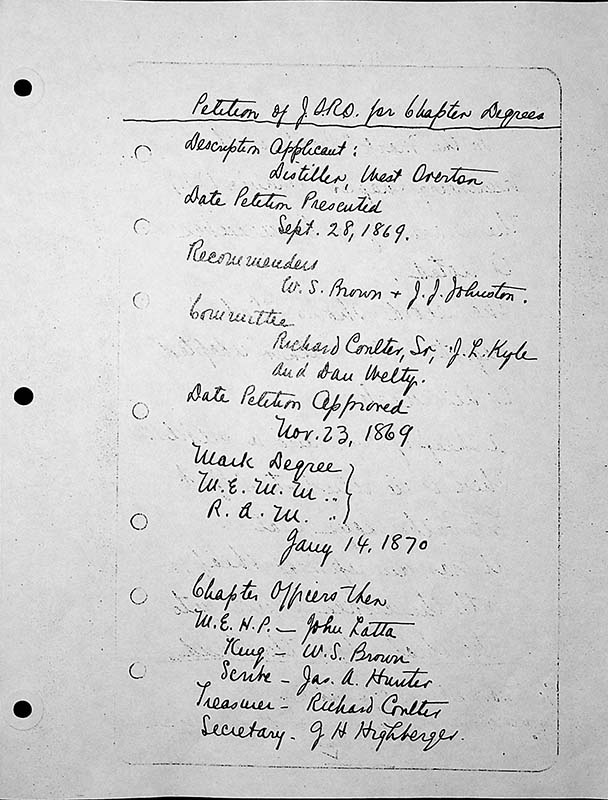 Petition of J.O.R.O. for Chapter Degrees
Description Applicant:
Distiller, West Overton
Date Petition Presented
Sept. 28, 1869.
Recommenders
W. S. Brown + J. J. Johnston.
Committee
Richard Coulter, Sr, J. L. Kyle
and Dan Welty.
Date Petition Approved
Nov. 23, 1869
Mark Degree
M. E. M. M ..
R. A. M. ..
Jany 14, 1870
Chapter Officers then
M. E. H. P. — John Latta
King — W. S. Brown
Scribe — Jas. A. Hunter
Treasurer — Richard Coulter
Secretary - J H Highberger.